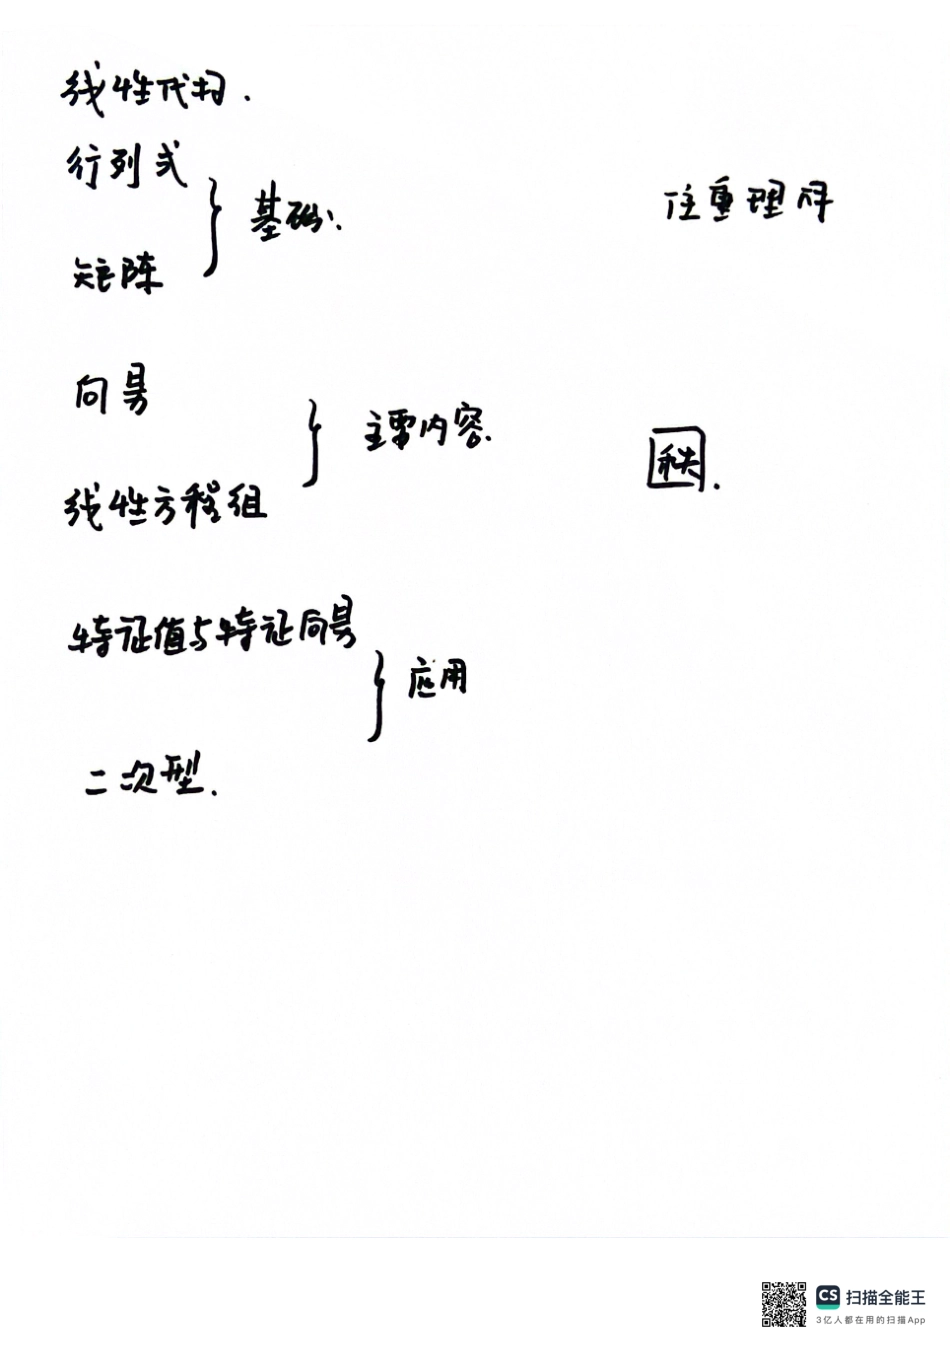 线性代数.
行列式
基础:
注重理解
矩阵
向量
主要内容.
秩.
线性方程组
特征值与特征向量
应用
二次型.
CS 扫描全能王
3亿人都在用的扫描App